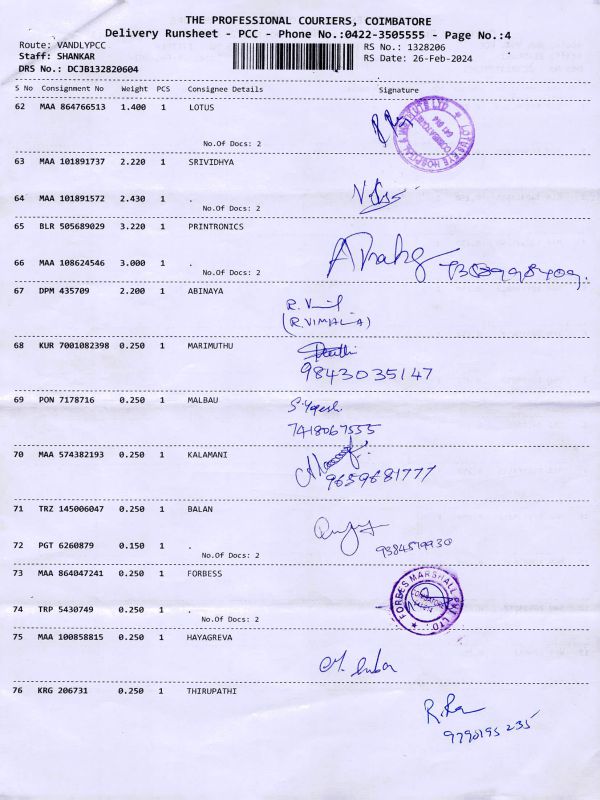 THE PROFESSIONAL COURIERS, COIMBATORE
Delivery Runsheet - PCC - Phone No.:0422-3505555 - Page No.:4
Route: VANDLYPCC RS No.: 1328206
Staff: SHANKAR RS Date: 26-Feb-2024
DRS No.: DCJB132820604
S No Consignment No Weight PCS Consignee Details Signature
62 MAA 864766513 1.400 1 LOTUS
No.Of Docs: 2
63 MAA 101891737 2.220 1 SRIVIDHYA
64 MAA 101891572 2.430 1 .
No.Of Docs: 2
65 BLR 505689029 3.220 1 PRINTRONICS
66 MAA 108624546 3.000 1 .
No.Of Docs: 2
67 DPM 435709 2.200 1 ABINAYA
(R.VIMALA)
68 KUR 7001082398 0.250 1 MARIMUTHU
9843035147
69 PON 7178716 0.250 1 MALBAU
S.Yogesh
7418067555
70 MAA 574382193 0.250 1 KALAMANI
9659681777
71 TRZ 145006047 0.250 1 BALAN
72 PGT 6260879 0.150 1 .
No.Of Docs: 2
73 MAA 864047241 0.250 1 FORBESS
FORBES MARSHALL PVT LTD.
74 TRP 5430749 0.250 1 .
No.Of Docs: 2
75 MAA 100858815 0.250 1 HAYAGREVA
76 KRG 206731 0.250 1 THIRUPATHI
9790195235